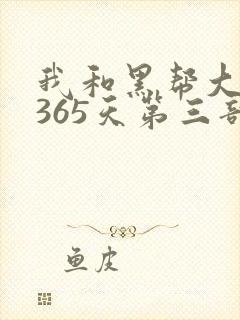 我和黑帮大
365天第三部
鱼皮